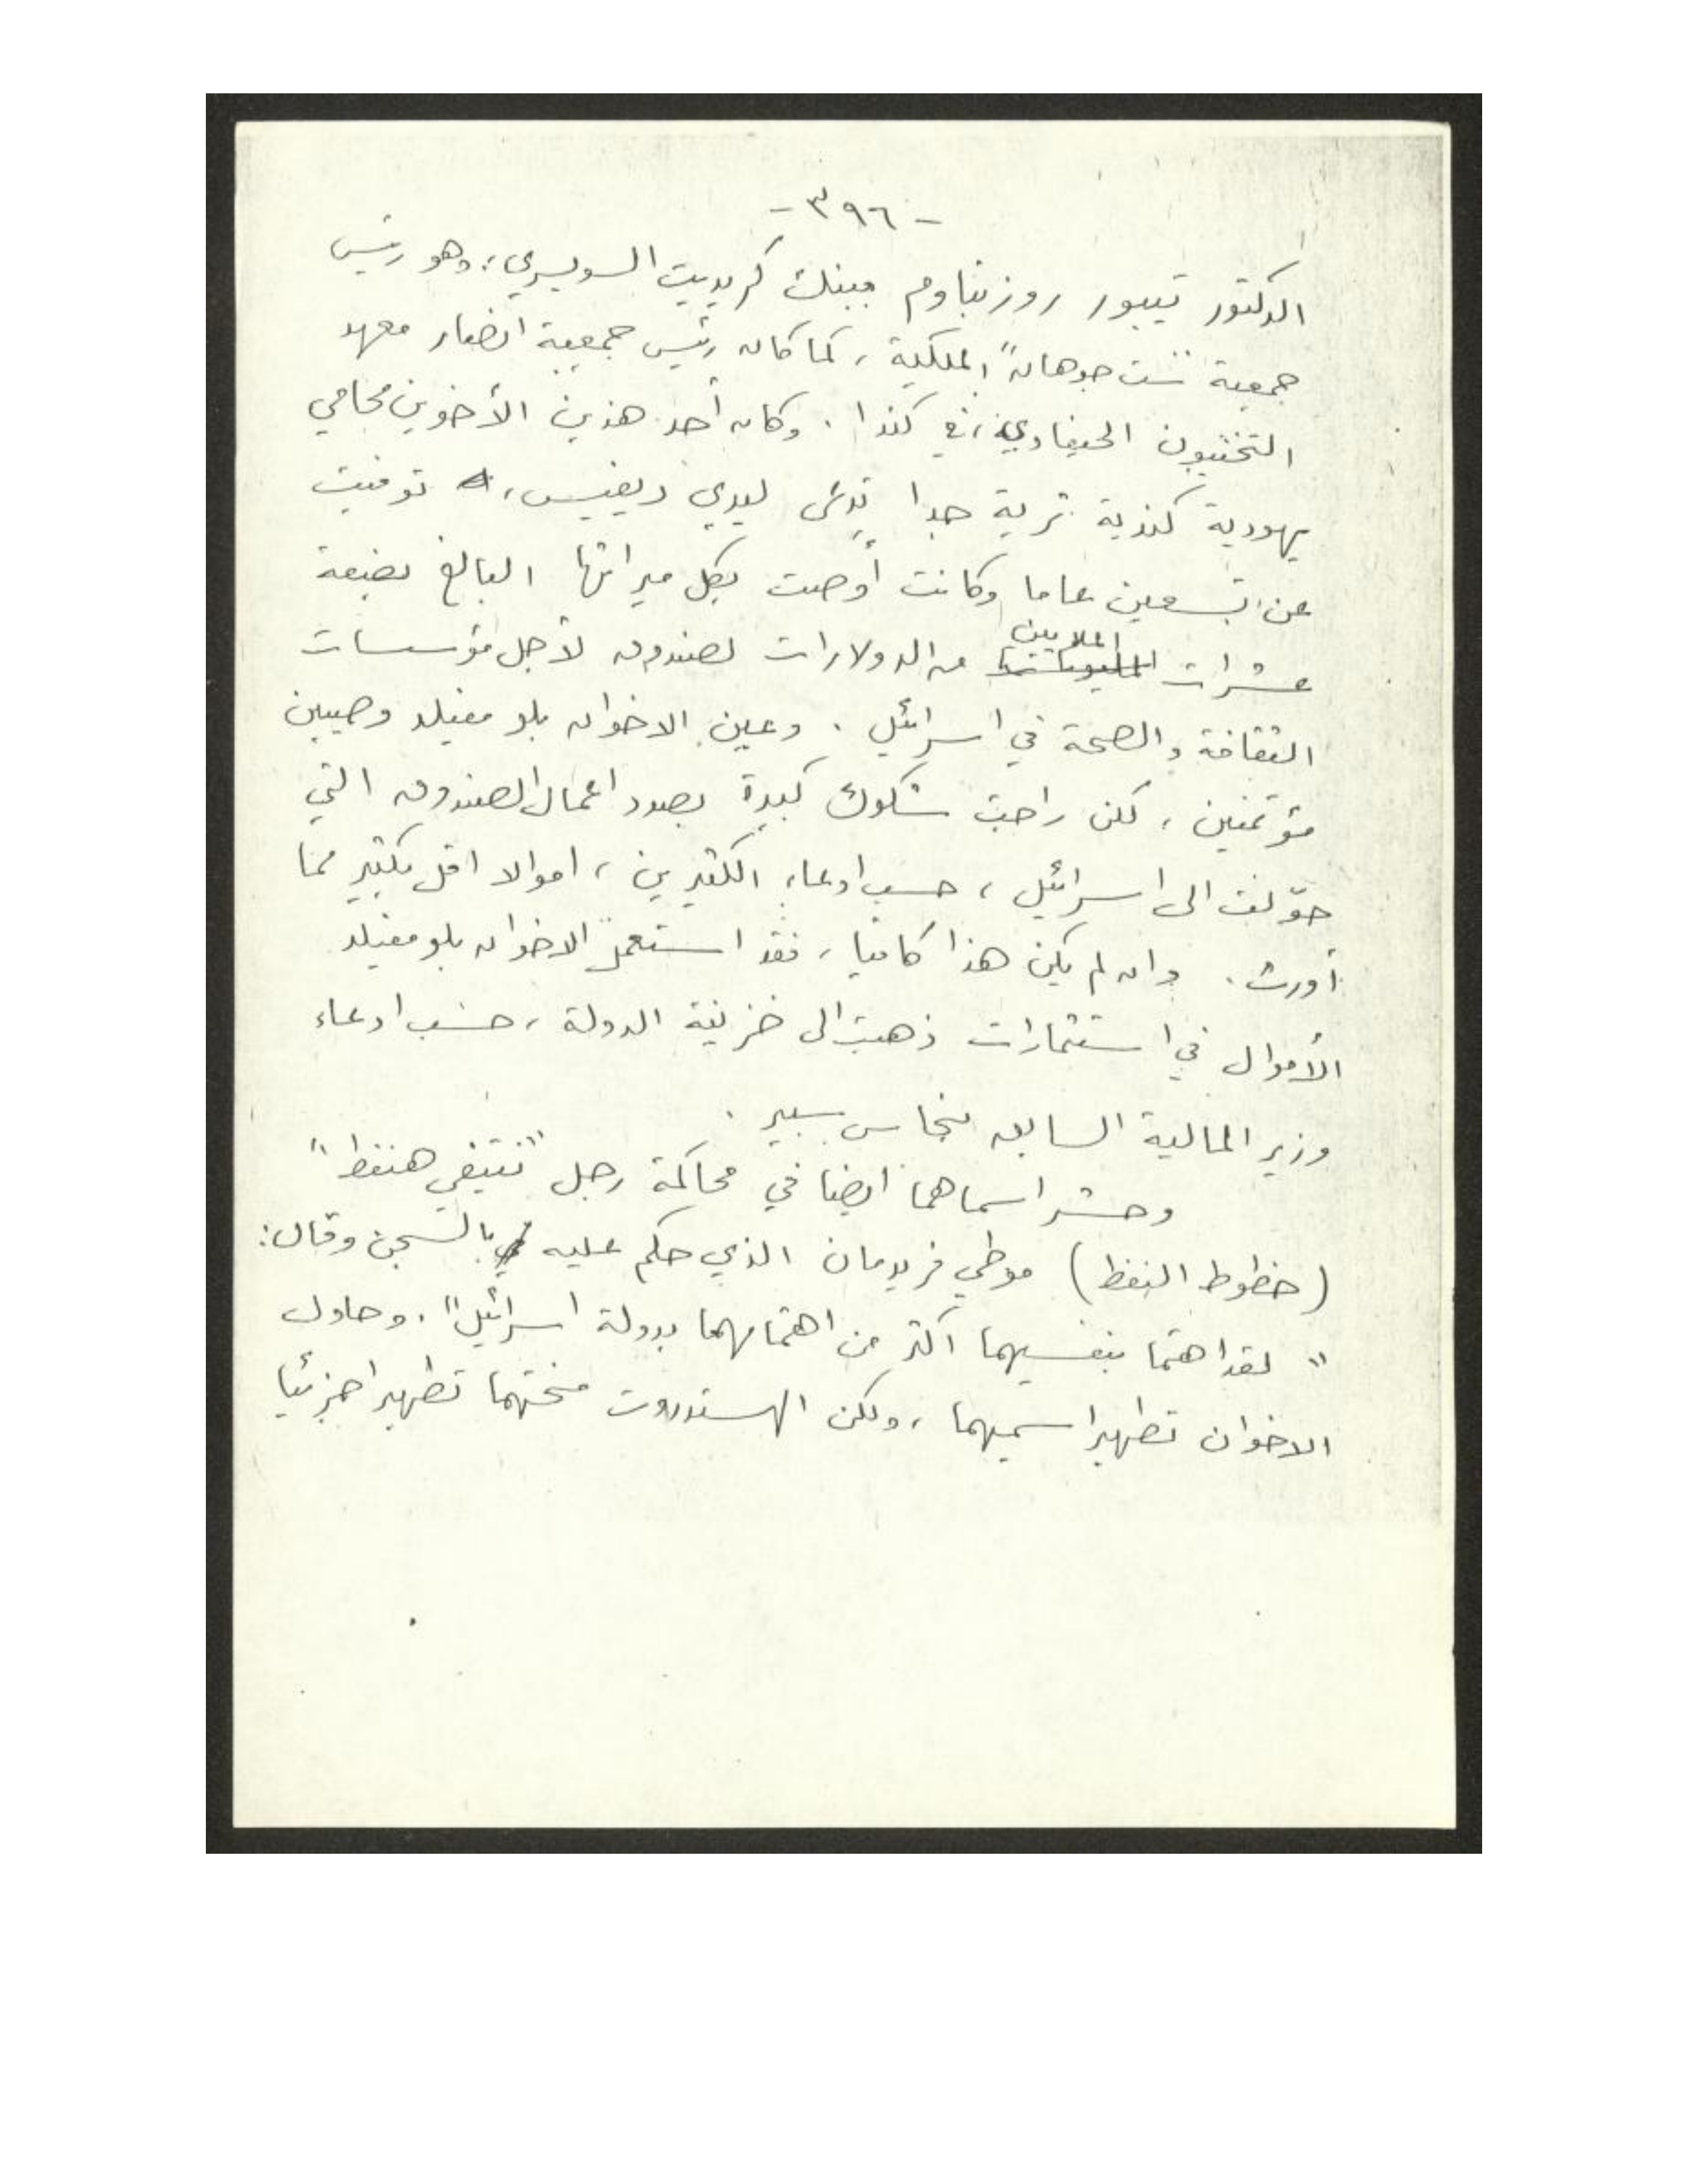 - ٣٩٦ -
الدكتور تيبور روزنباوم ببنك كريديت السويسري، وهو رئيس
جمعية "سنت جوهان" الملكية، كما كان رئيس جمعية انصار معهد
التخنيون الحيفاوي، في كندا. وكان أحد هذين الأخوين محامي
يهودية كندية ثرية جدا تدعى ليدي ديفيس، توفيت
عن تسعين عاما وكانت أوصت بكل ميراثها البالغ بضعة
عشرات الملايين من الدولارات لصندوق لأجل مؤسسات
الثقافة والصحة في اسرائيل. وعين الاخوان بلومفيلد وصيين
مؤتمنين، لكن راجت شكوك كبيرة بصدد اعمال الصندوق التي
حوّلت الى اسرائيل، حسب ادعاء الكثيرين، اموالا اقل بكثير مما
أورث. وان لم يكن هذا كافيا، فقد استعمل الاخوان بلومفيلد
الأموال في استثمارات ذهبت الى خزينة الدولة، حسب ادعاء
وزير المالية السابق بنحاس سبير.
وحشر اسماهما ايضا في محاكمة رجل "نتيفي هنفط"
(خطوط النفط) موطي فريدمان الذي حكم عليه بالسجن وقال:
" لقد اهتما بنفسيهما اكثر من اهتمامهما بدولة اسرائيل". وحاول
الاخوان تطهير اسميهما، ولكن الهستدروت منحتهما تطهيرا جزئيا